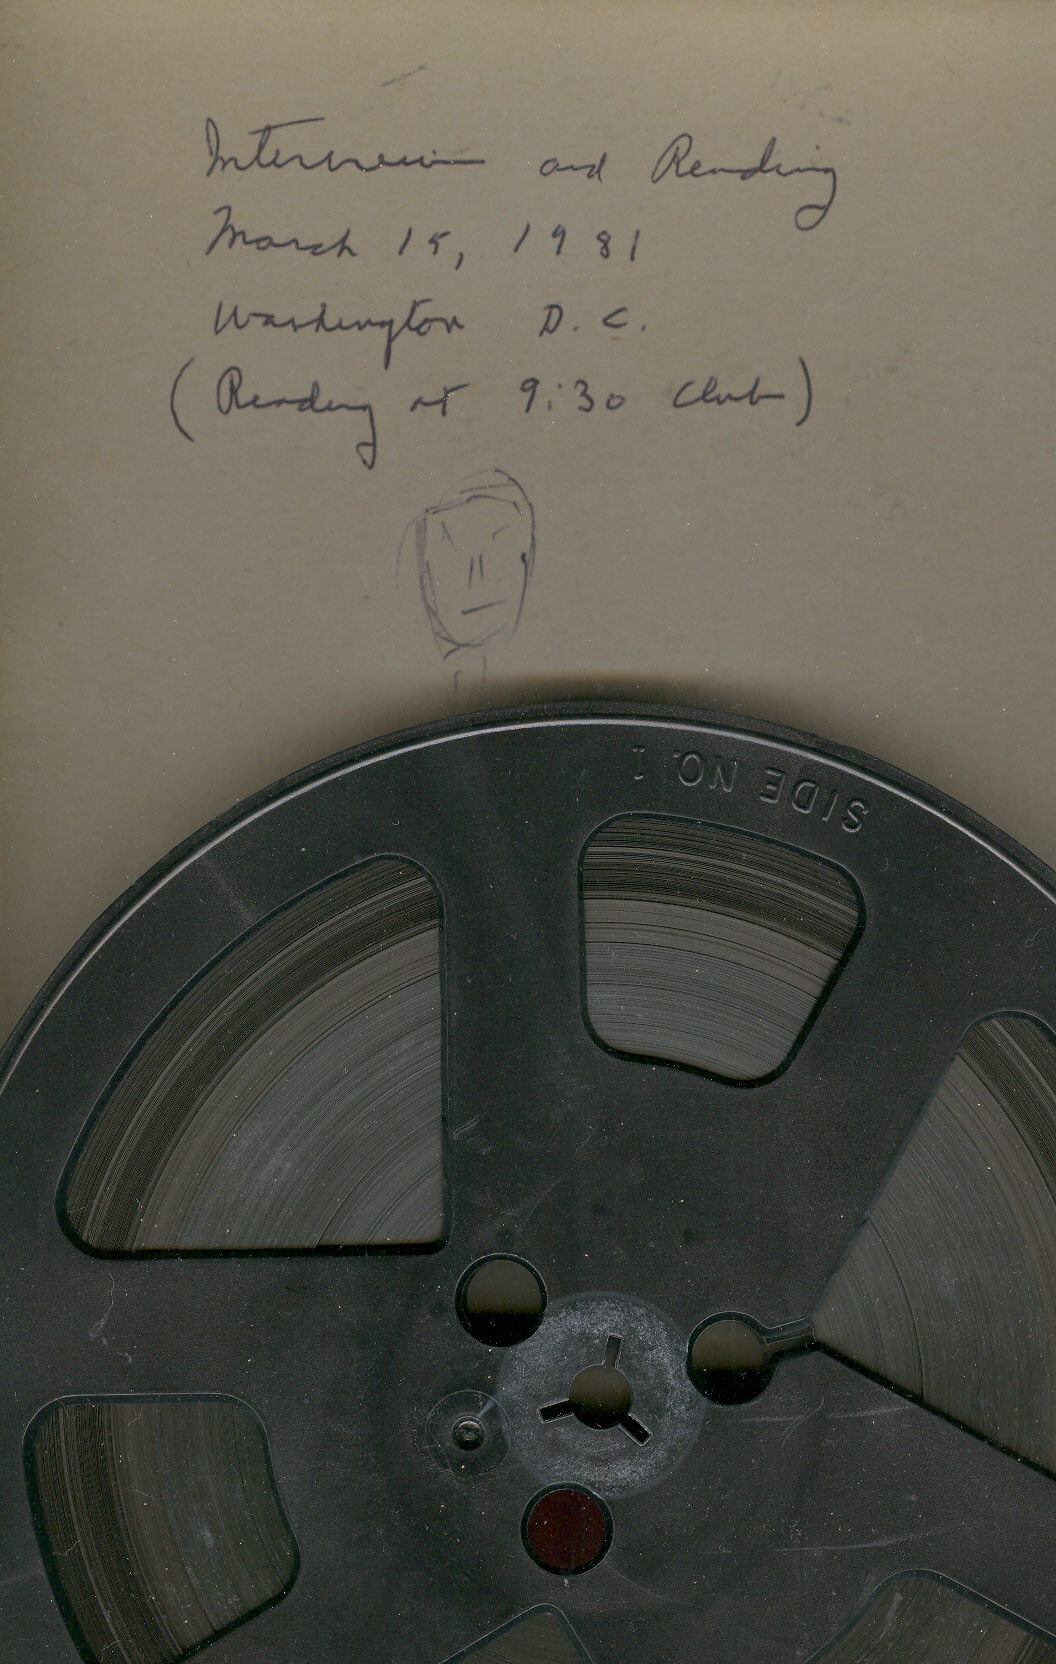 Interview and Reading
March 15, 1981
Washington D.C.
(Reading at 9:30 Club)
SIDE NO. 1